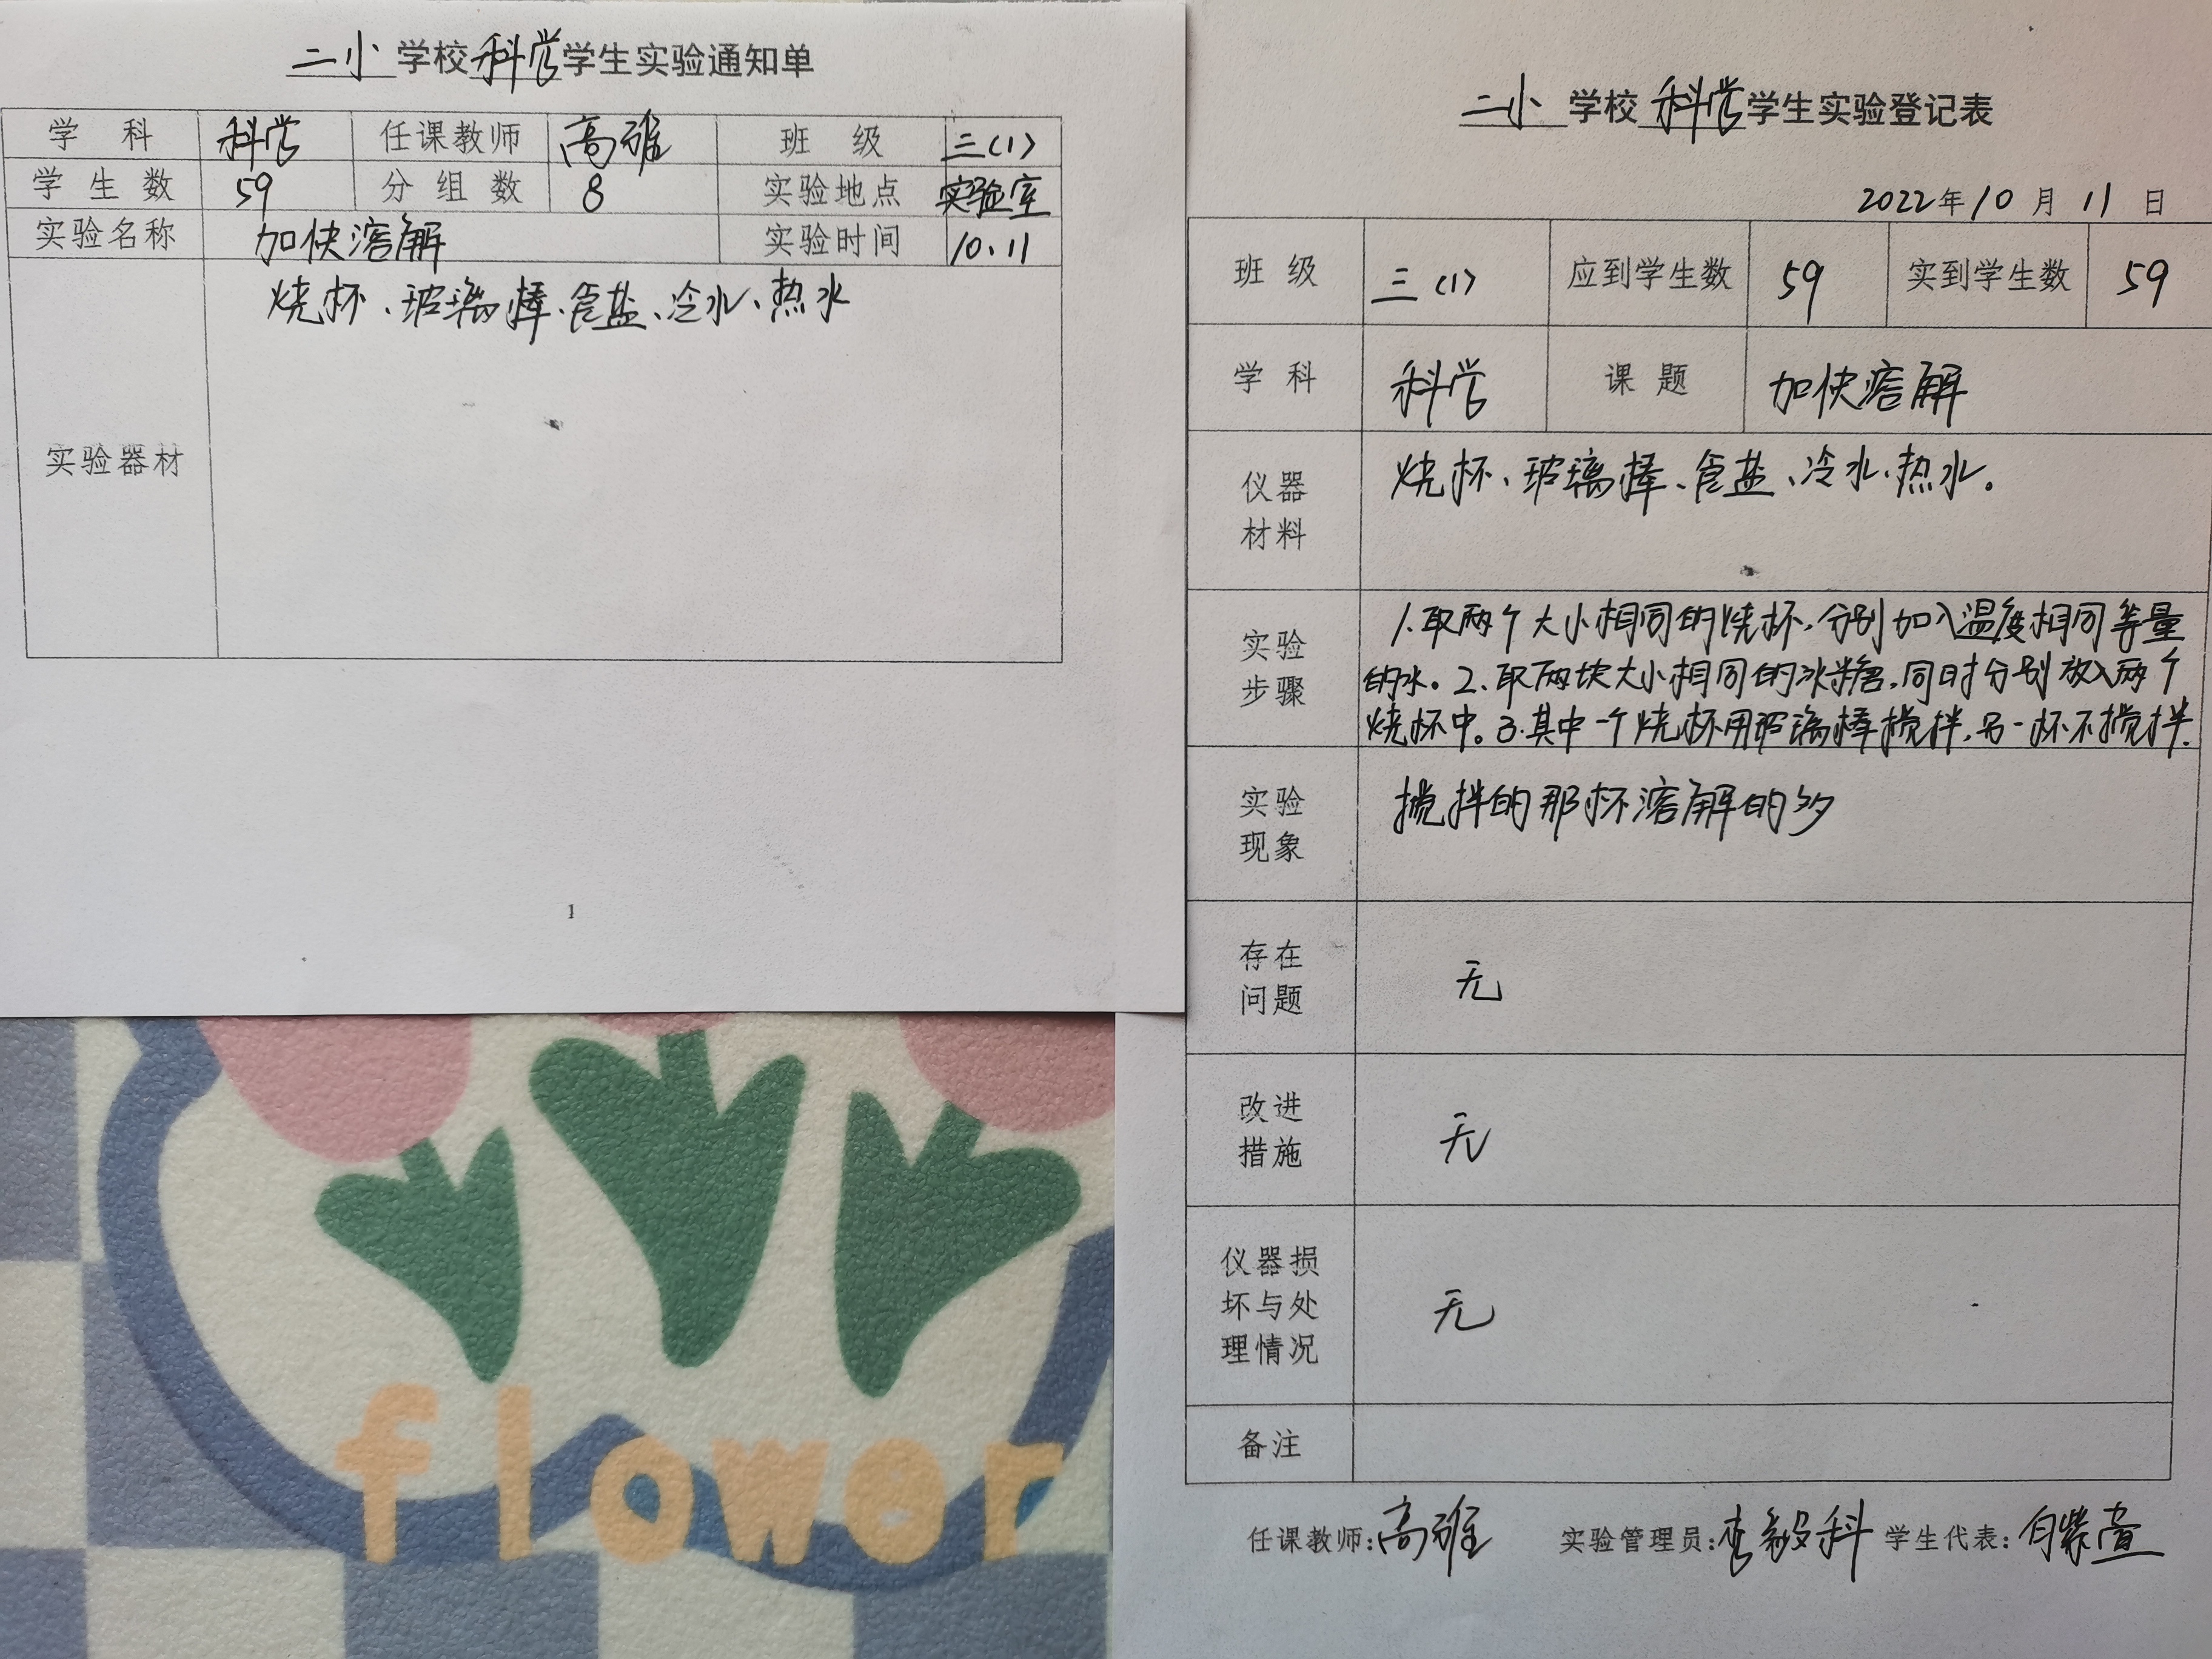 二小 学校 科学 学生实验通知单
学 科 科学 任课教师 高雅 班 级 三(1)
学 生 数 59 分 组 数 8 实验地点 实验室
实验名称 加快溶解 实验时间 10.11
实验器材 烧杯、玻璃棒、食盐、冷水、热水
1
flower
二小 学校 科学 学生实验登记表
2022年10月11日
班 级 三(1) 应到学生数 59 实到学生数 59
学 科 科学 课 题 加快溶解
仪器
材料
烧杯、玻璃棒、食盐、冷水、热水。
实验
步骤
1.取两个大小相同的烧杯,分别加入温度相同等量
的水。2.取两块大小相同的冰糖,同时分别放入两个
烧杯中。3.其中一个烧杯用玻璃棒搅拌,另一杯不搅拌.
实验
现象
搅拌的那杯溶解的多
存在
问题
无
改进
措施
无
仪器损
坏与处
理情况
无
备注
任课教师:高雅 实验管理员:李毅科 学生代表: